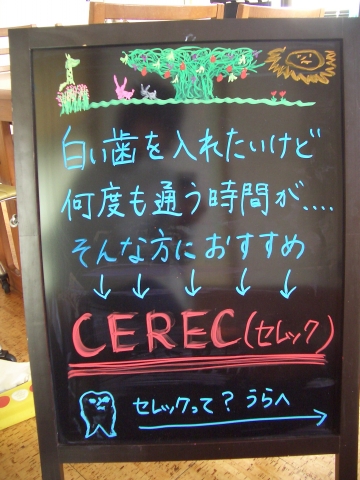 白い歯を入れたいけど
何度も通う時間が....
そんな方におすすめ
↓ ↓ ↓ ↓ ↓
CEREC(セレック)
セレックって?うらへ